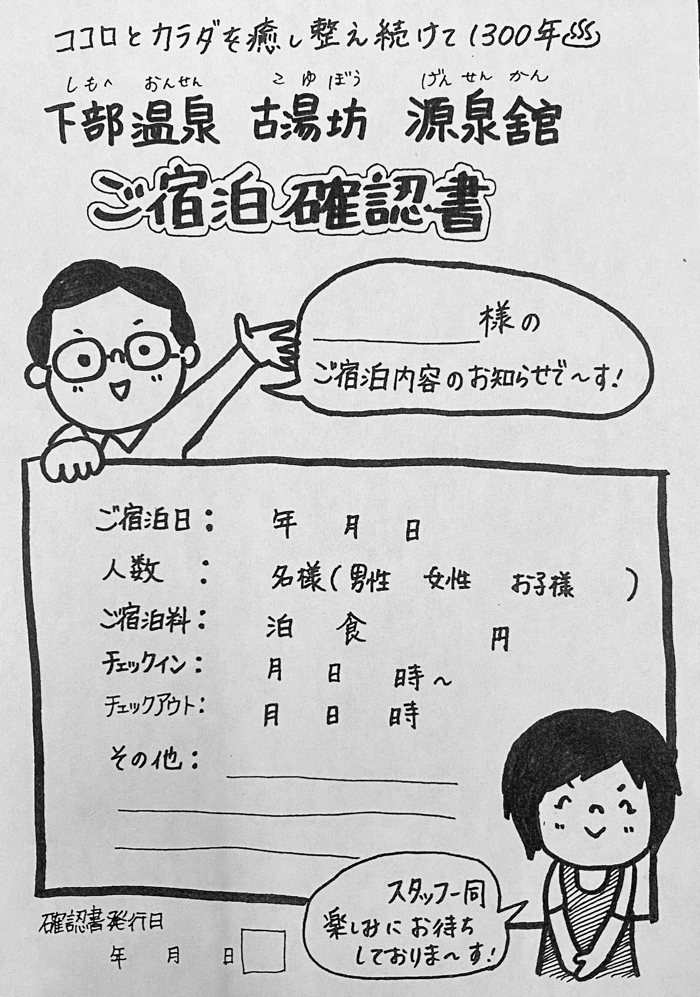 ココロとカラダを癒し整え続けて1300年
しもべ おんせん こゆぼう げんせんかん
下部温泉 古湯坊 源泉舘
ご宿泊確認書
様の
ご宿泊内容のお知らせで〜す!
ご宿泊日: 年 月 日
人数 : 名様(男性 女性 お子様 )
ご宿泊料: 泊 食 円
チェックイン: 月 日 時〜
チェックアウト: 月 日 時
その他:
スタッフ一同
楽しみにお待ち
しておりま〜す!
確認書発行日
年 月 日